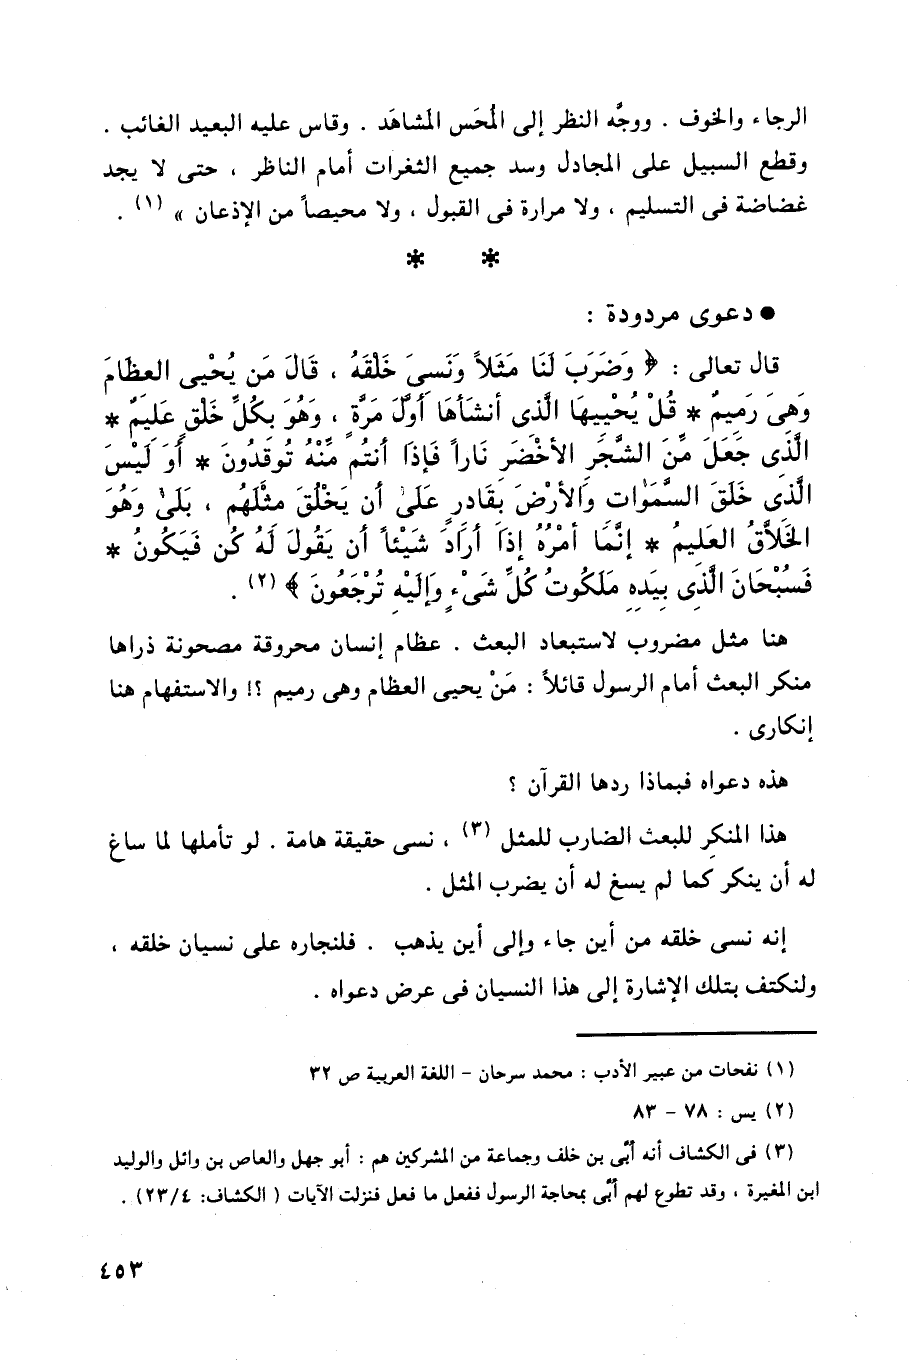 الرجاء والخوف . ووجَّه النظر إلى المُحَس المُشاهَد . وقاس عليه البعيد الغائب .
وقطع السبيل على المجادل وسد جميع الثغرات أمام الناظر ، حتى لا يجد
غضاضة فى التسليم ، ولا مرارة فى القبول ، ولا محيصاً من الإذعان » (١) .
* *
● دعوى مردودة :
قال تعالى : ﴿ وَضَرَبَ لَنَا مَثَلاً وَنَسِىَ خَلْقَهُ ، قَالَ مَن يُحْيِى العظَامَ
وَهِىَ رَمِيمٌ * قُلْ يُحْيِيهَا الَّذِى أَنشَأَهَا أَوَّلَ مَرَّةٍ ، وَهُوَ بِكُلِّ خَلْقٍ عَلِيمٌ *
الَّذِى جَعَلَ مِّنَ الشَّجَرِ الأَخْضَرِ نَاراً فَإِذَا أَنتُم مِّنْهُ تُوقِدُونَ * أَوَ لَيْسَ
الَّذِى خَلَقَ السَّمَوَاتِ وَالأَرْضَ بِقَادِرٍ عَلَىٰ أَن يَخْلُقَ مِثْلَهُم ، بَلَىٰ وَهُوَ
الخَلاَّقُ العَلِيمُ * إِنَّمَا أَمْرُهُ إِذَا أَرَادَ شَيْئاً أَن يَقُولَ لَهُ كُن فَيَكُونُ *
فَسُبْحَانَ الَّذِى بِيَدِهِ مَلَكُوتُ كُلِّ شَىْءٍ وَإِلَيْهِ تُرْجَعُونَ ﴾ (٢) .
هنا مثل مضروب لاستبعاد البعث . عظام إنسان محروقة مصحونة ذراها
منكر البعث أمام الرسول قائلاً : مَنْ يحيى العظام وهى رميم ؟! والاستفهام هنا
إنكارى .
هذه دعواه فبماذا ردها القرآن ؟
هذا المنكر للبعث الضارب للمثل (٣) ، نسى حقيقة هامة . لو تأملها لما ساغ
له أن ينكر كما لم يسغ له أن يضرب المثل .
إنه نسى خلقه من أين جاء وإلى أين يذهب . فلنجاره على نسيان خلقه ،
ولنكتف بتلك الإشارة إلى هذا النسيان فى عرض دعواه .
(١) نفحات من عبير الأدب : محمد سرحان - اللغة العربية ص ٣٢
(٢) يس : ٧٨ - ٨٣
(٣) فى الكشاف أنه أُبَّى بن خلف وجماعة من المشركين هم : أبو جهل والعاص بن وائل والوليد
ابن المغيرة ، وقد تطوع لهم أُبَّى بمحاجة الرسول ففعل ما فعل فنزلت الآيات ( الكشاف: ٢٣/٤) .
٤٥٣